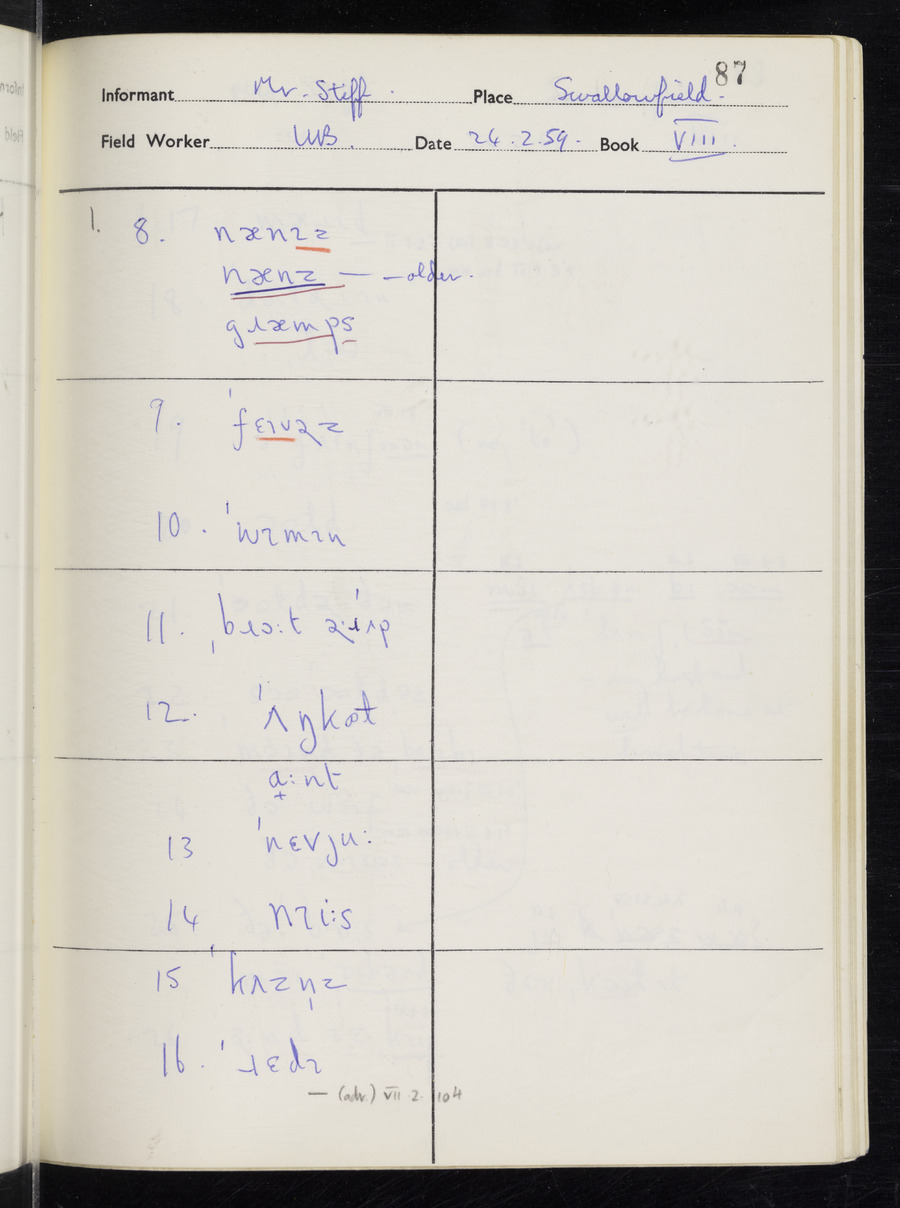 87
Informant Mr. Stiff. Place Swallowfield.
Field Worker WB. Date 24.2.59. Book VIII.
1. 8. nænɪz
nænz — — older.
gɹæmps
9. ˈfɛɪvəz
10. ˈwɪmɪn
11. ˌbɹɔːt əːˈɹʌp
12. ˈʌŋkəɫ
ɑ̟ːnt
13 ˈnɛvjuː
14 nɪiːs
15 ˈkʌzn̩z
16. ˈɹɛdɪ
— (adv.) VII.2.104